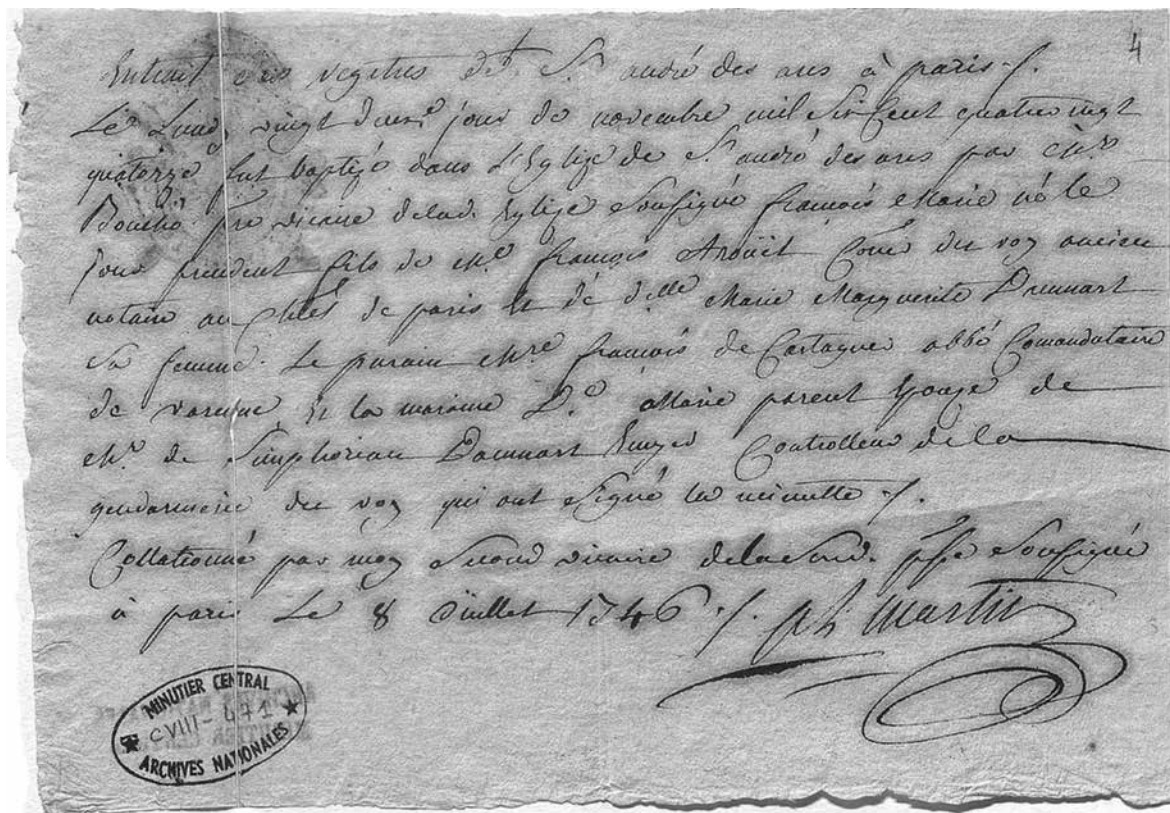 4
Extrait des registres de St andré des arcs à paris ./.
Le Lundy vingt deuxe jour de novembre mil Six Cent quatre vingt
quatorze fut baptizé dans L'Eglize de St andré des arcs par Mr
Bouché ptre vicaire delad. Eglize Soussigné françois Marie né le
Jour precedent fils de Me françois Aroüet Coner du roy ancien
notaire au Chlet de paris Et de delle Marie Marguerite Daumart
Sa femme. Le parain Mre françois de Castagner abbé Comandataire
de varenne Et la maraine De Marie parent Epouze de
Mr de Simphorien Daumart Ecuyer Controlleur de la
gendarmerie du roy qui ont Signé la minutte ./.
Collationné par moy Second vicaire delasusd. psse Soussigné
à paris Le 8 Juillet 1746 ./. ph Martin
MINUTIER CENTRAL
CVIII - 471
ARCHIVES NATIONALES